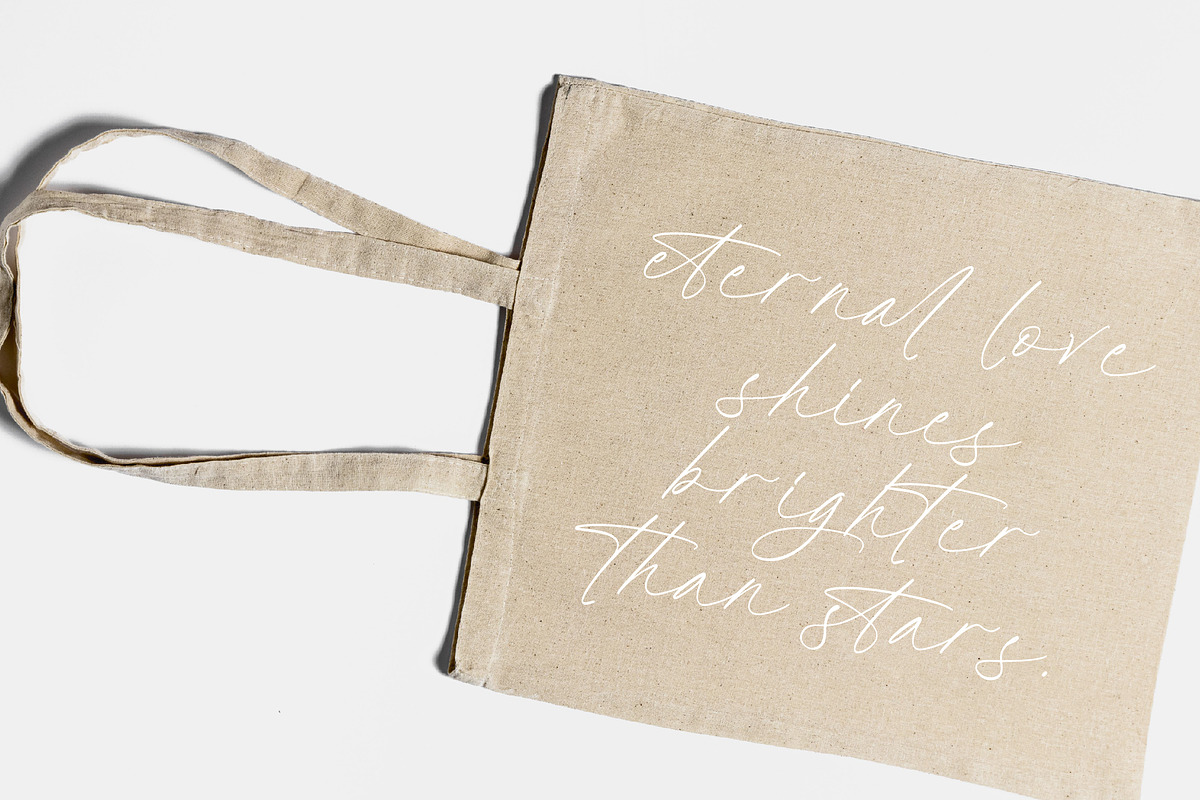 eternal love
shines
brighter
than stars.